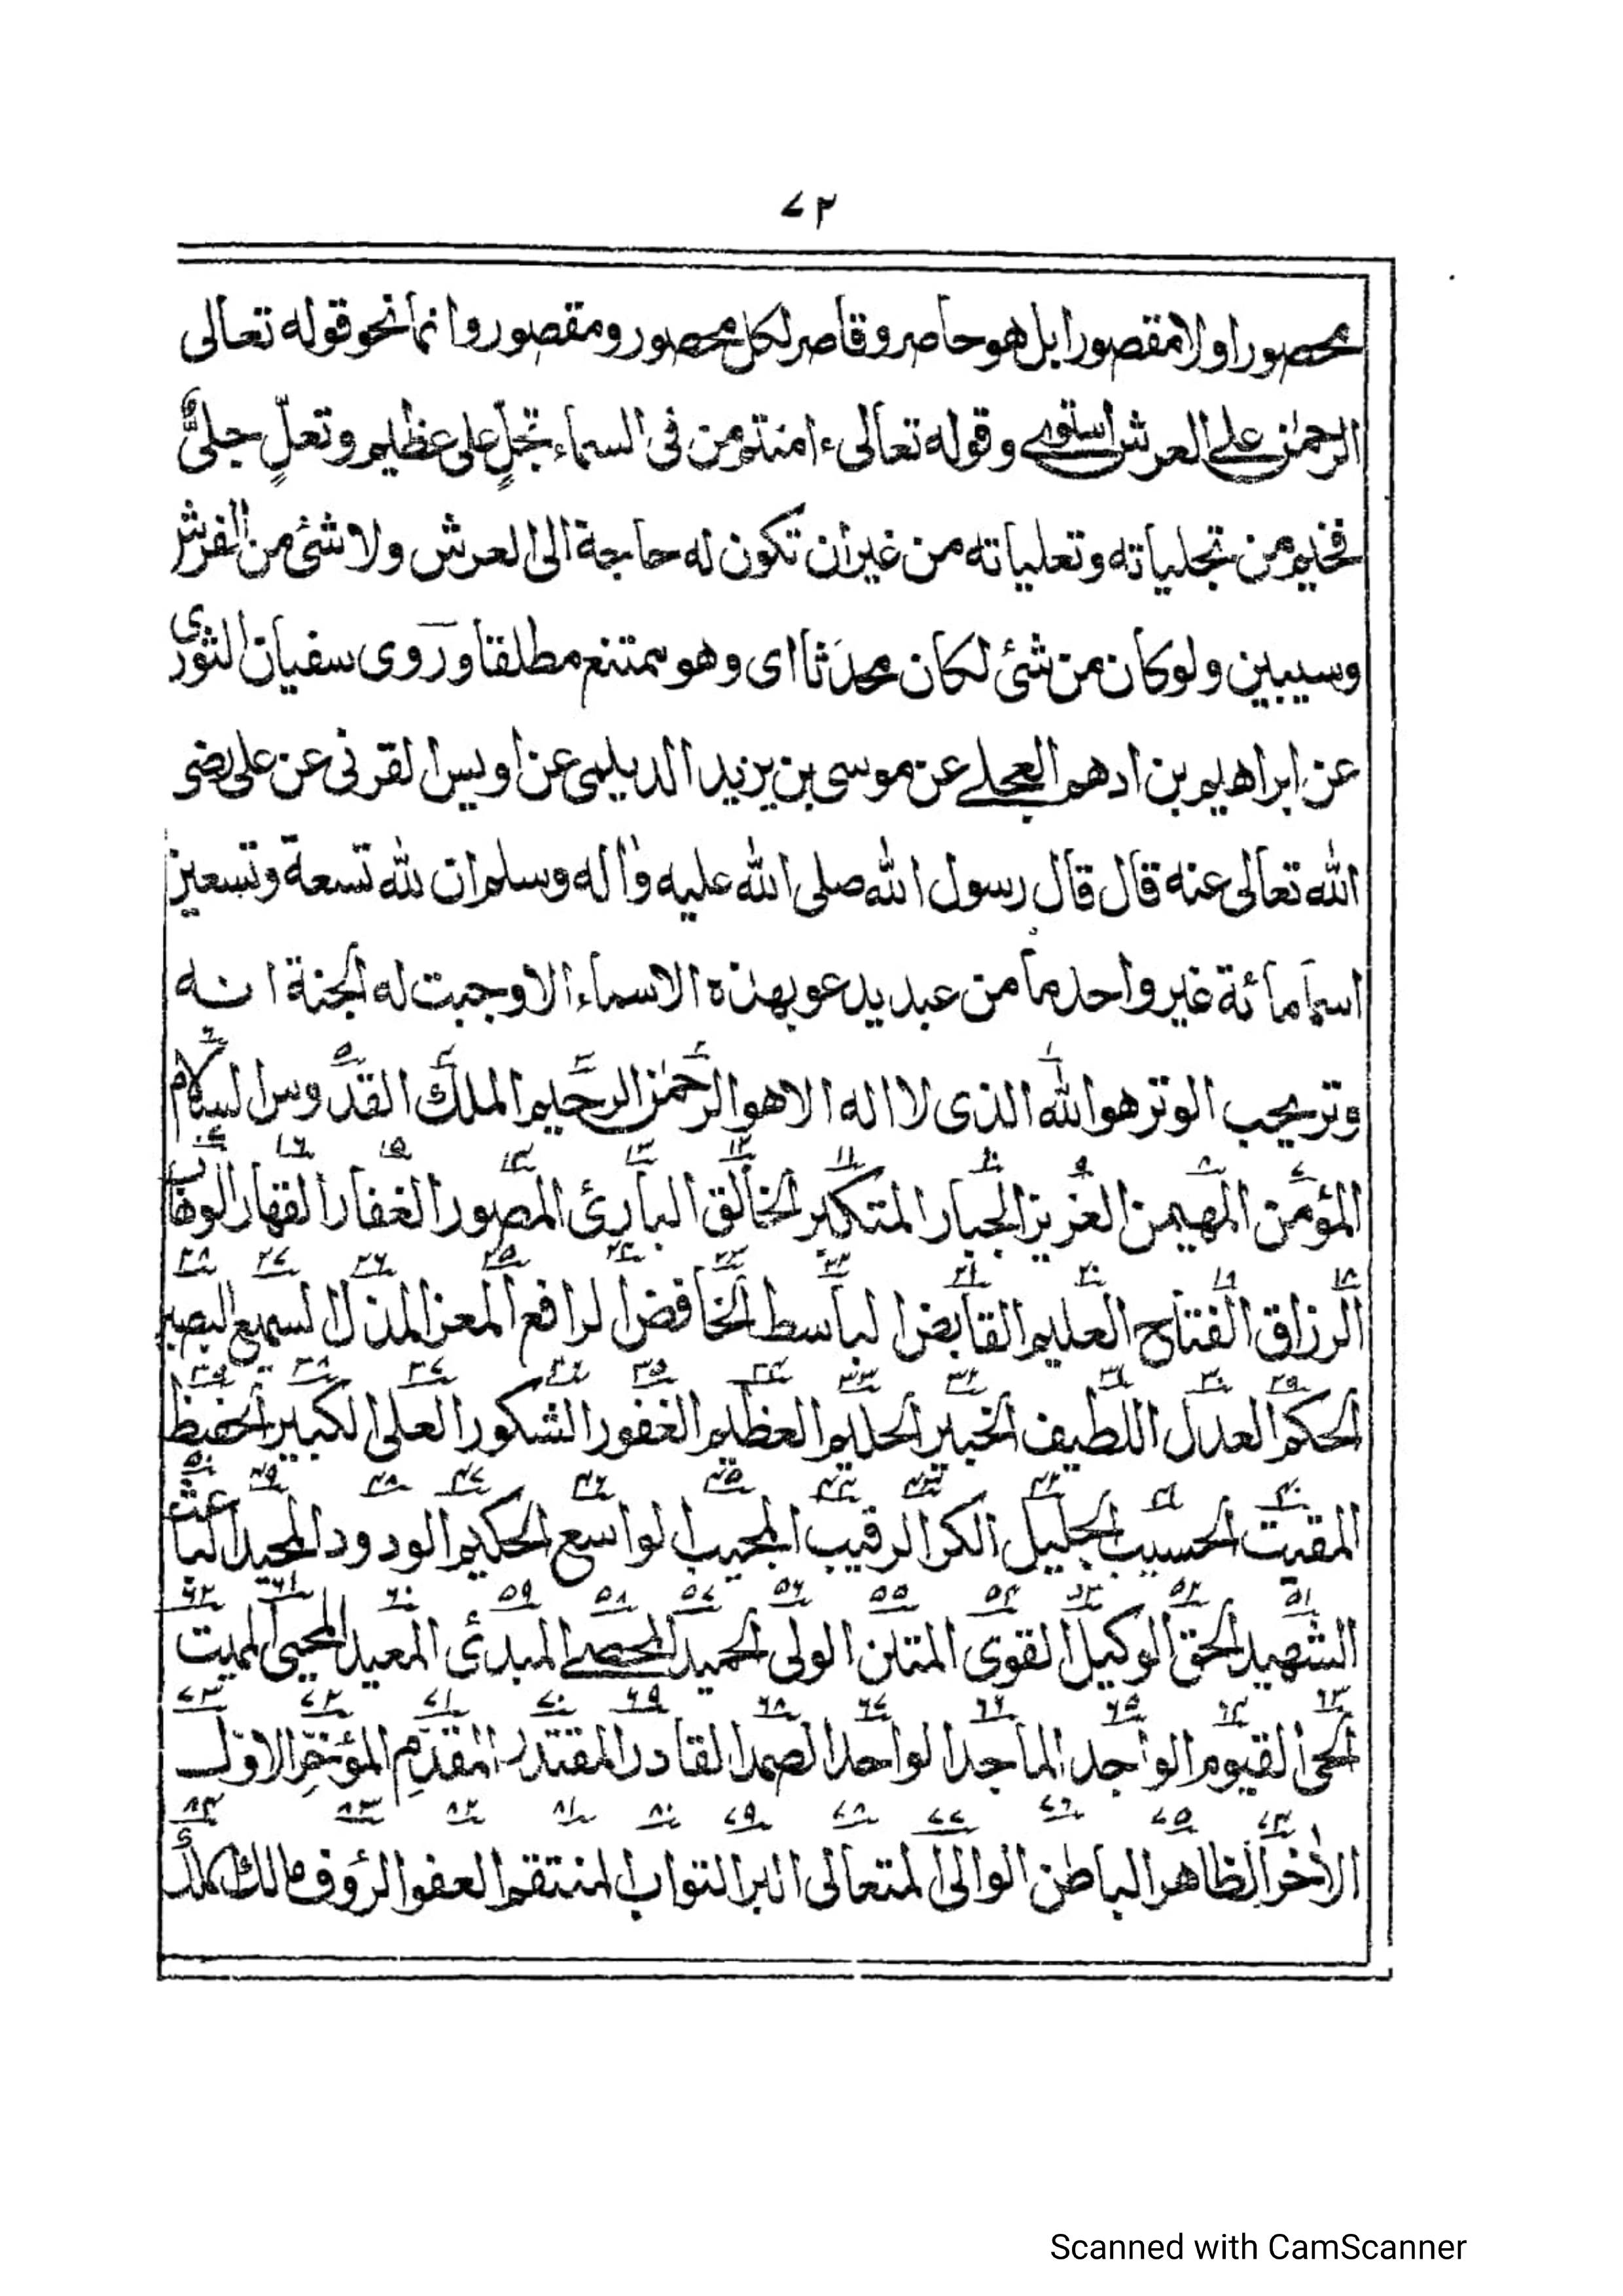 ٧٢
محصورا ولا مقصورا بل هو حاصر وقاصر لكل محصور ومقصور وانما نحو قوله تعالى
الرحمٰن على العرش استوى وقوله تعالى ءامنتم من فى السماء تجلٍّ على عظيم وتعلٍّ جلىٌّ
فخيم من تجلياته وتعلياته من غير ان تكون له حاجة الى العرش ولا شئ من الفرش
وسيبين ولو كان من شئ لكان محدَثا اى وهو ممتنع مطلقا ورَوى سفيان الثورى
عن ابراهيم بن ادهم العجلى عن موسى بن يزيد الديلمى عن اويس القرنى عن على رضى
الله تعالى عنه قال قال رسول الله صلى الله عليه واٰله وسلم ان لله تسعة وتسعين
اسما مائة غير واحد ما من عبد يدعو بهذه الاسماء الا وجبت له الجنة انه
وتر يحب الوتر هو الله الذى لا اله الا هو الرحمٰن الرحيم الملك القدوس السلام
١ ٢ ٣ ٤ ٥ ٦
المؤمن المهيمن العزيز الجبار المتكبر الخالق البارئ المصور الغفار القهار الوهاب
٧ ٨ ٩ ١٠ ١١ ١٢ ١٣ ١٤ ١٥ ١٦ ١٧
الرزاق الفتاح العليم القابض الباسط الخافض الرافع المعز المذل السميع البصير
١٨ ١٩ ٢٠ ٢١ ٢٢ ٢٣ ٢٤ ٢٥ ٢٦ ٢٧ ٢٨
الحكم العدل اللطيف الخبير الحليم العظيم الغفور الشكور العلى الكبير الحفيظ
٢٩ ٣٠ ٣١ ٣٢ ٣٣ ٣٤ ٣٥ ٣٦ ٣٧ ٣٨ ٣٩
المقيت الحسيب الجليل الكر الرقيب المجيب الواسع الحكيم الودود المجيد الباعث
٤٠ ٤١ ٤٢ ٤٣ ٤٤ ٤٥ ٤٦ ٤٧ ٤٨ ٤٩ ٥٠
الشهيد الحق الوكيل القوى المتين الولى الحميد المحصى المبدئ المعيد المحيى المميت
٥١ ٥٢ ٥٣ ٥٤ ٥٥ ٥٦ ٥٧ ٥٨ ٥٩ ٦٠ ٦١ ٦٢
الحى القيوم الواجد الماجد الواحد الصمد القادر المقتدر المقدِّم المؤخِّر الاوّل
٦٣ ٦٤ ٦٥ ٦٦ ٦٧ ٦٨ ٦٩ ٧٠ ٧١ ٧٢ ٧٣
الاٰخر الظاهر الباطن الوالى المتعالى البر التواب المنتقم العفو الرؤف مالك الملك
٧٤ ٧٥ ٧٦ ٧٧ ٧٨ ٧٩ ٨٠ ٨١ ٨٢ ٨٣ ٨٤
Scanned with CamScanner